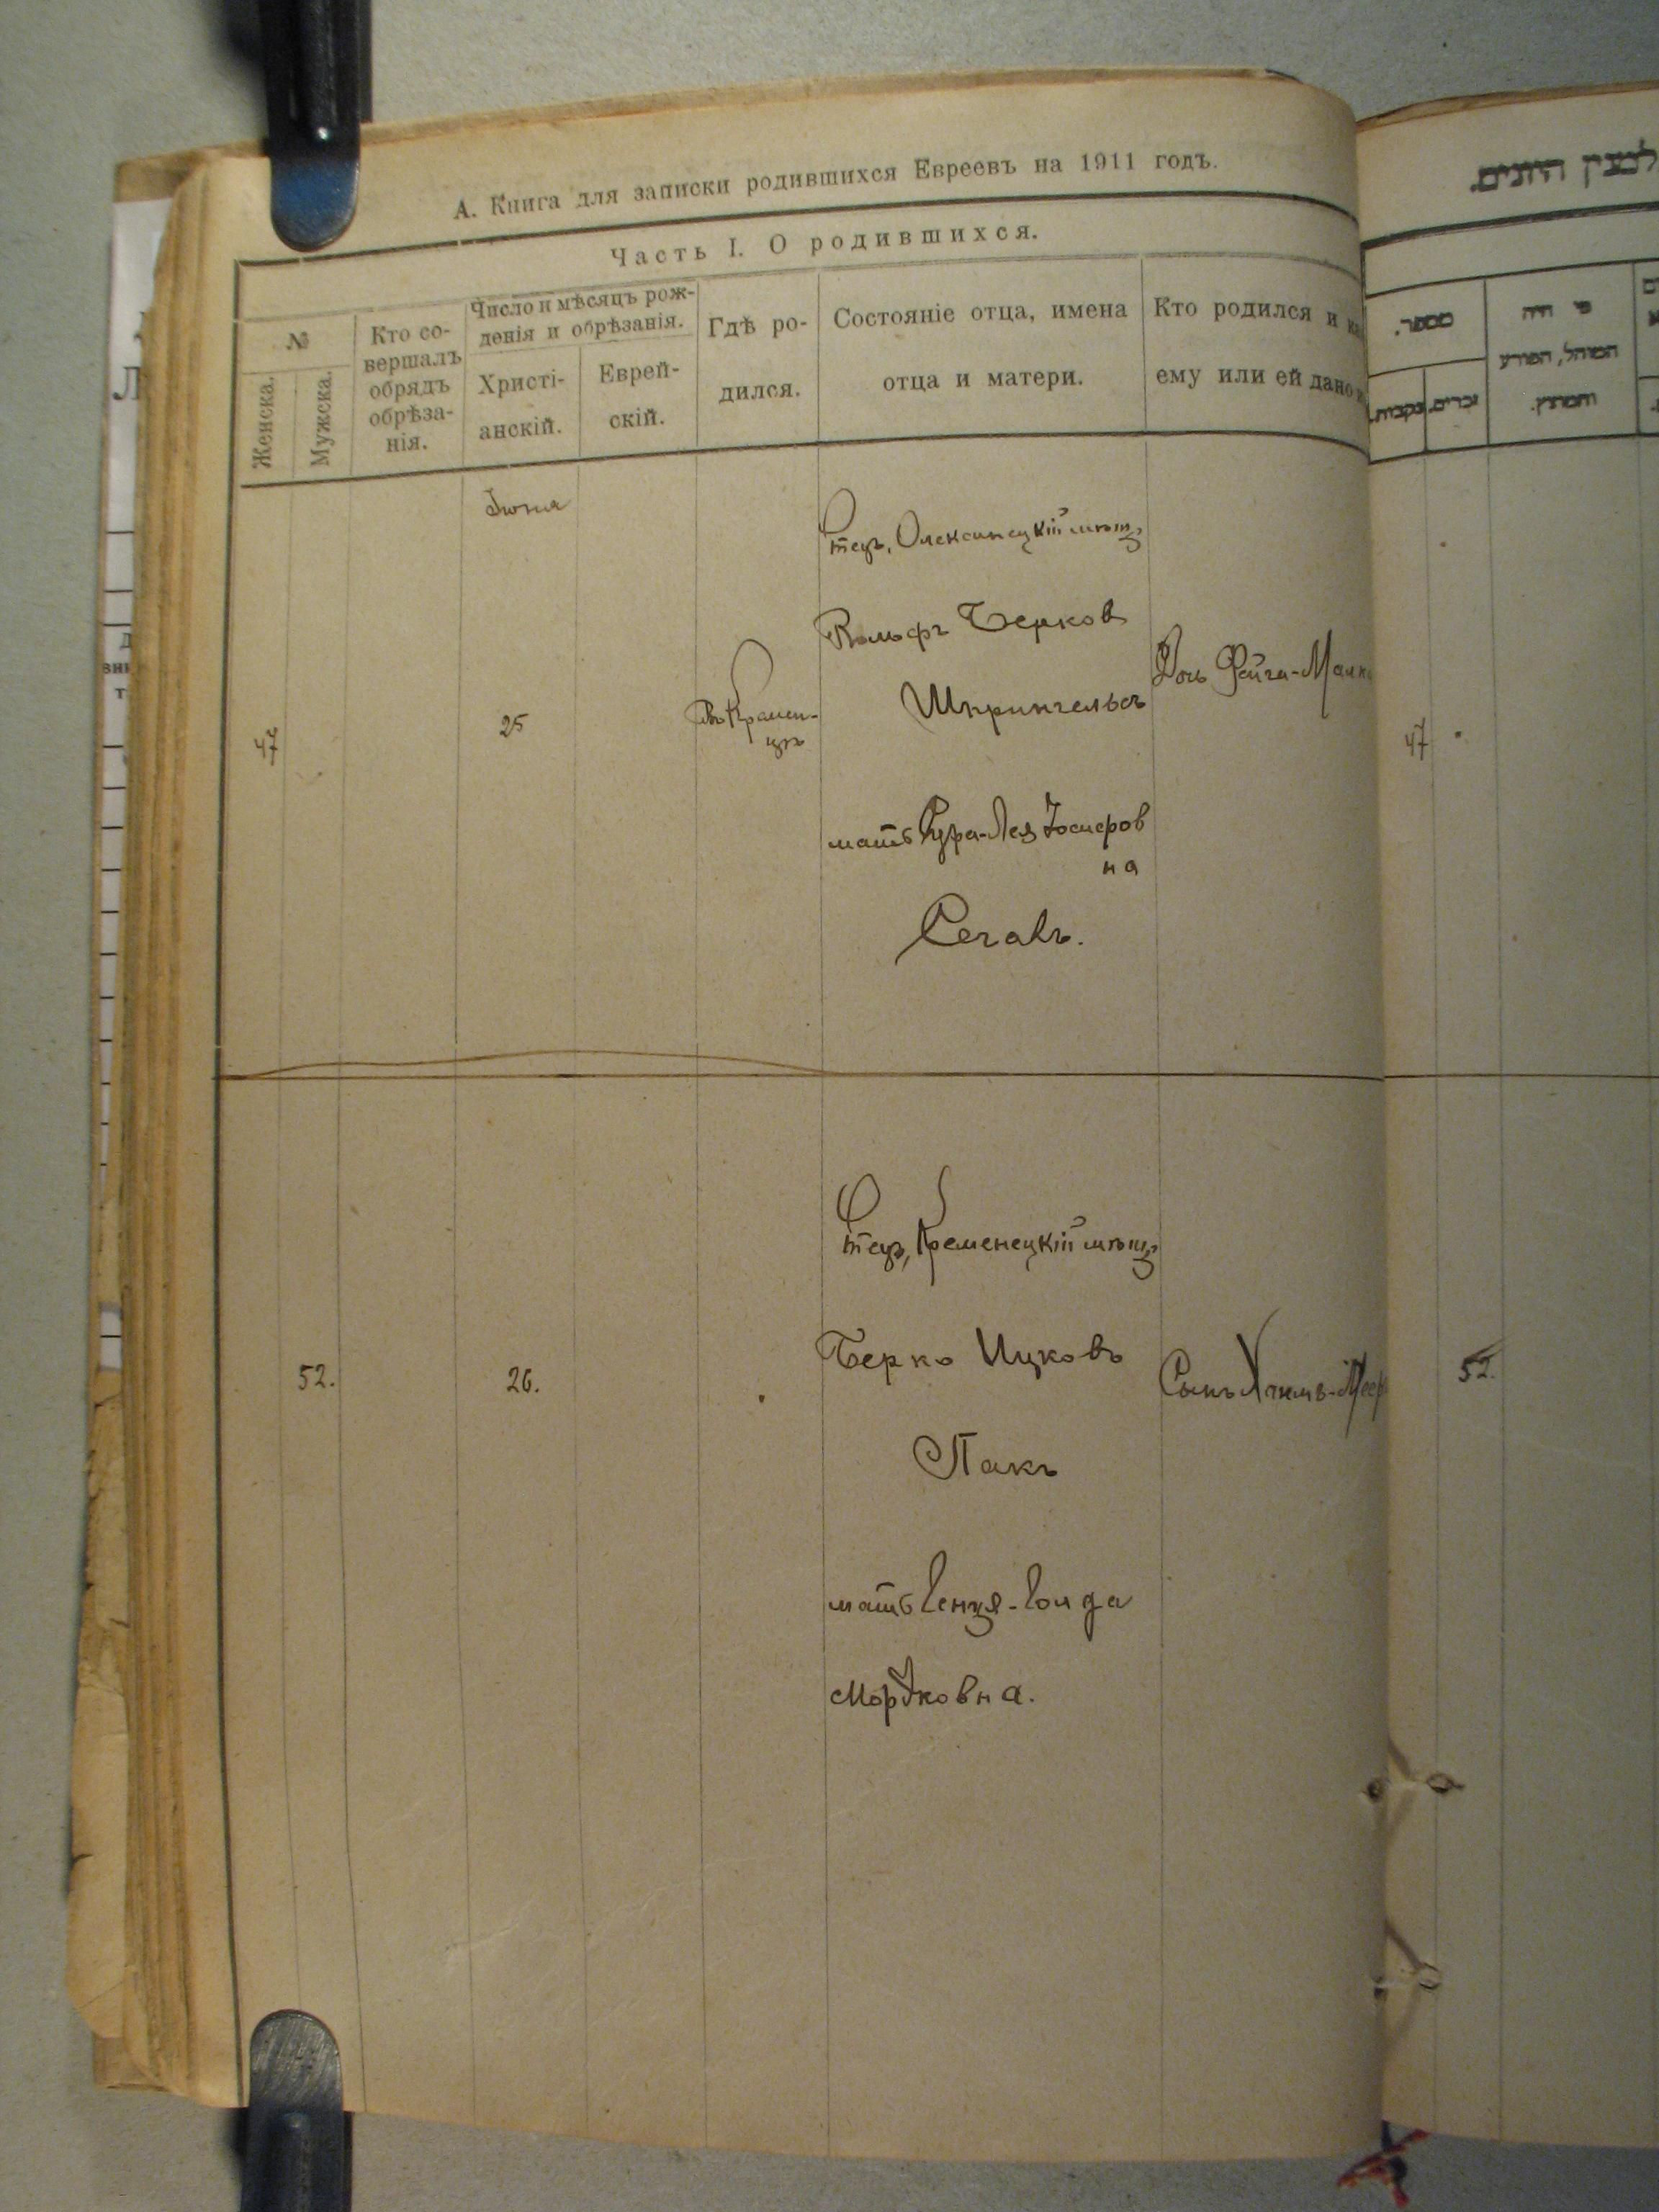 А. Книга для записки родившихся Евреевъ на 1911 годъ.
Часть I. О родившихся.
№
Женска.
Мужска.
Кто со-
вершалъ
обрядъ
обрѣза-
нія.
Число и мѣсяцъ рож-
денія и обрѣзанія.
Христі-
анскій.
Еврей-
скій.
Гдѣ ро-
дился.
Состояніе отца, имена
отца и матери.
Кто родился и
ему или ей дано
Іюня
47
25
Въ Кремен-
цѣ
Отецъ, Олексинецкій мѣщ.
Вольфъ Берков
Шпрингельсъ
мать Сура-Лея Іосифов
на
Сегалъ.
Дочь Фейга-Малк
52.
26.
Отецъ, Кременецкій мѣщ.
Берко Ицковъ
Пакъ
мать Генця-Голда
Мордковна.
Сынъ Хаимъ-Меер
לנצין היונים.
מספר.
זכרים.
נקבות.
מי היה
המוהל, הפורע
והמוצץ.
47
52.